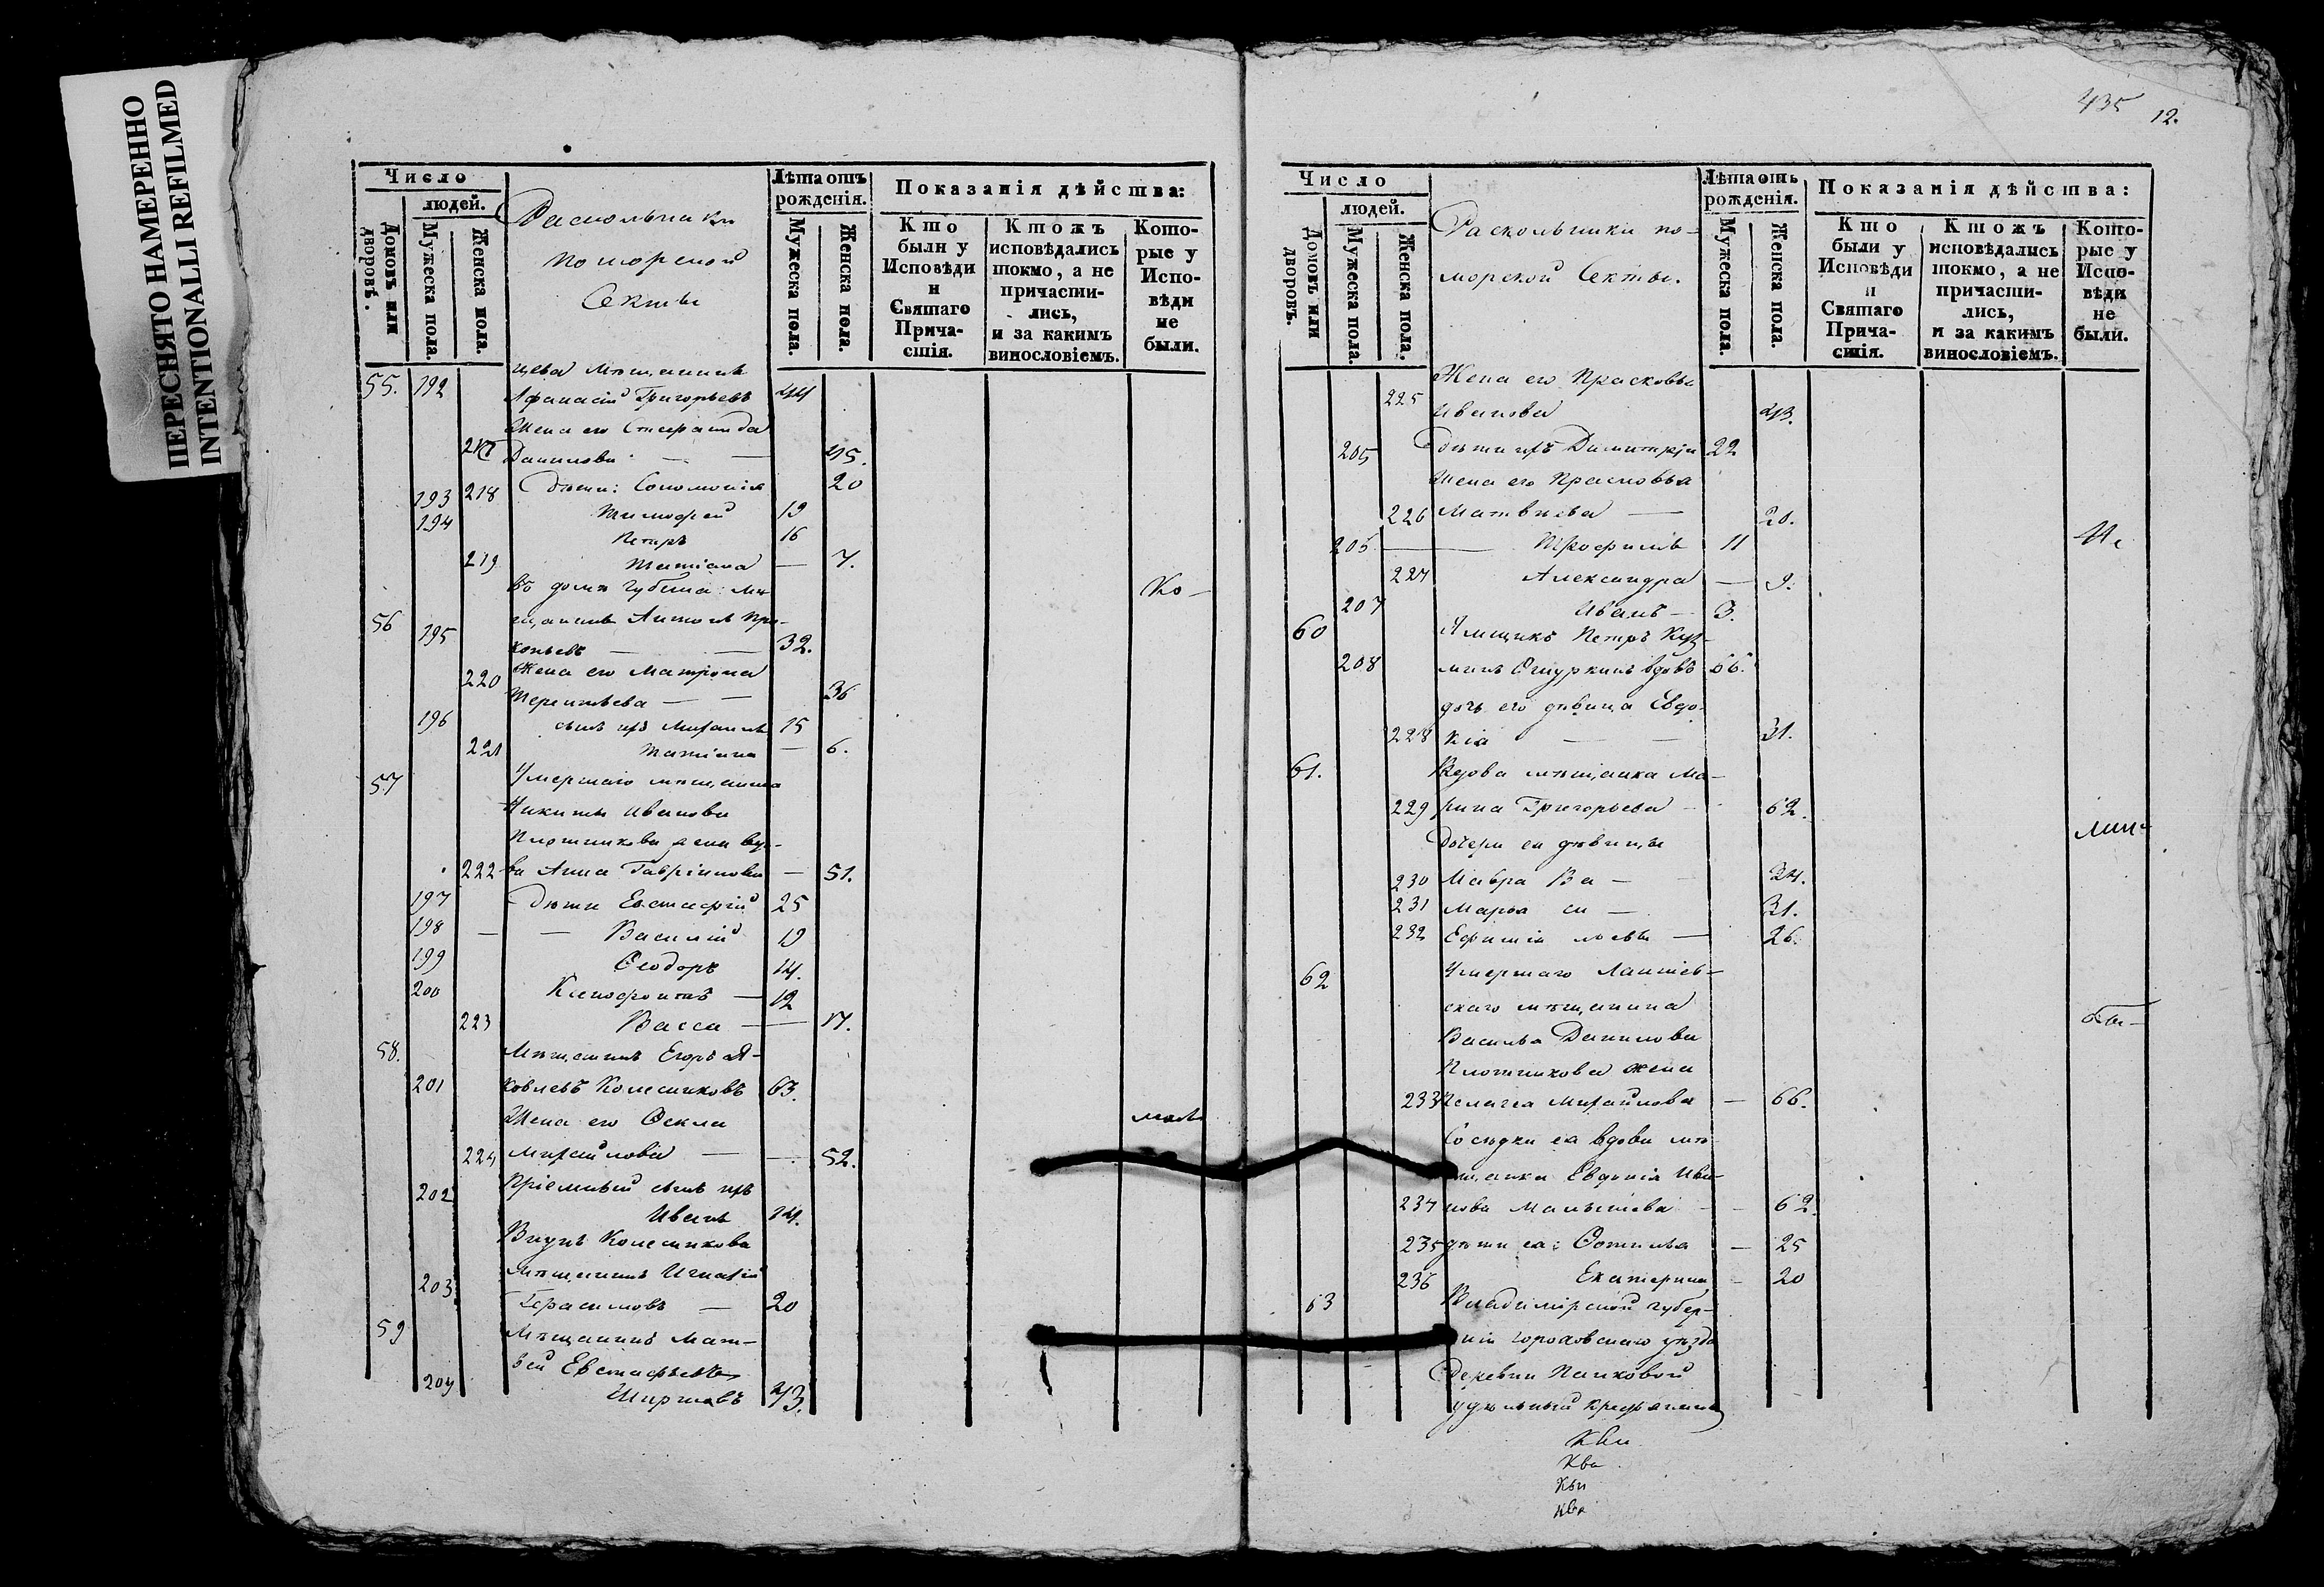 ПЕРЕСНЯТО НАМЕРЕННО
INTENTIONALLI REFILMED
Число
людей.
Домовъ или дворовъ.
Мужеска пола.
Женска пола.
Раскольники
поморской
Секты
Лѣта отъ
рожденія.
Мужеска пола.
Женска пола.
Показанія дѣйства:
Кто
были у
Исповѣди
и
Святаго
Прича-
стія.
Ктожъ
исповѣдались
токмо, а не
причасти-
лись,
и за какимъ
винословіемъ.
Кото-
рые у
Испо-
вѣди
не
были.
цева мѣщанинъ
55. 192 Афанасій Григорьевъ 44
Жена его Степанида
217 Данилова — — 45.
218 Дѣти: Соломонія 20
193 Тимофей 19
194 Петръ 16
219 Татіана — 7.
въ домѣ Губина: мѣ- Ко-
56 195 щанинъ Антонъ Про-
копьевъ — — 32.
220 Жена его Матрона
Терентьева — — 36
196 сынъ ихъ Михаилъ 15
221 Татіана — 6.
57 Умершаго мѣщанина
Никиты Иванова
Плотникова жена вдо-
222 ва Анна Гавріилова — 51.
197 Дѣти Евстафій 25
198 — — Василій 19
199 Ѳеодоръ 14.
200 Ксенофонтъ — 12
223 Васса — 17.
58. Мѣщанинъ Егоръ Я-
201 ковлевъ Колесниковъ 63.
Жена его Ѳекла
224 Михайлова — — 52.
202 Пріемный сынъ ихъ
Иванъ 14.
Внукъ Колесникова
203 Мѣщанинъ Игнатій
Герасимовъ — 20
59 Мѣщанинъ Мат-
вей Евстафьевъ
204 43.
435 12.
Число
людей.
Домовъ или дворовъ.
Мужеска пола.
Женска пола.
Раскольники по-
морской Секты.
Лѣта отъ
рожденія.
Мужеска пола.
Женска пола.
Показанія дѣйства:
Кто
были у
Исповѣди
и
Святаго
Прича-
стія.
Ктожъ
исповѣдались
токмо, а не
причасти-
лись,
и за какимъ
винословіемъ.
Кото-
рые у
Испо-
вѣди
не
были.
Жена его Прасковья
225 Иванова 43.
205 Дѣти ихъ Димитрій 22
Жена его Прасковья
226 Матвѣева — 20.
206 — — Трофимъ 11
227 Александра — 9.
207 Иванъ — 3.
60 Ямщикъ Петръ Куз-
208 минъ вдовъ 56.
дочь его дѣвица Евдо-
228 кія — — 31.
61. Вдова мѣщанка Ма-
229 рина Григорьева — 62.
Дочери ея дѣвицы
230 Мавра Ва — 34.
231 Марья си — 31.
232 Ефимія льевы — 26.
62 Умершаго Лаишев-
скаго мѣщанина
Василья Данилова
Плотникова жена
233 Пелагея Михайлова — 66.
Сосѣдки ея вдова мѣ-
щанка Евдокія Ива-
234 нова — 62.
235 дѣти ея: Фотинья — 25
236 Екатерина — 20
63 Владимірской губер-
ніи Гороховскаго уѣзда
Деревни Панковой
удѣльный крестьянинъ